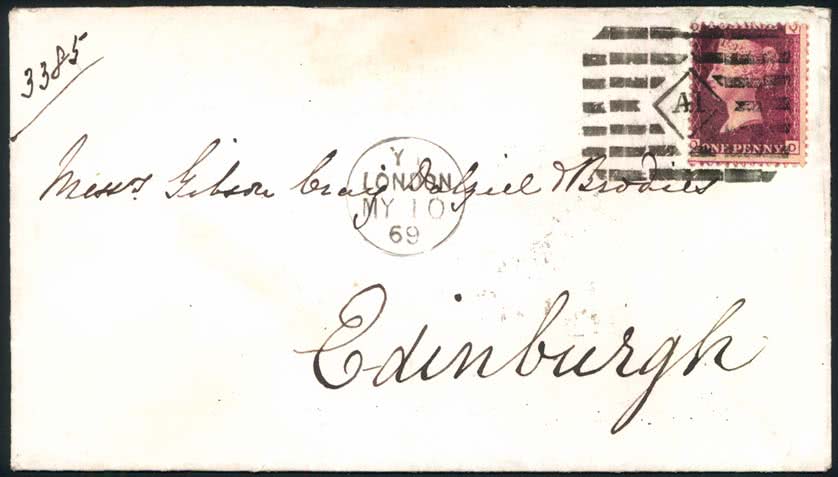 3385
A1
ONE PENNY
Y
LONDON
MY 10
69
Messrs Gibson Craig Dalziel & Brodies
Edinburgh